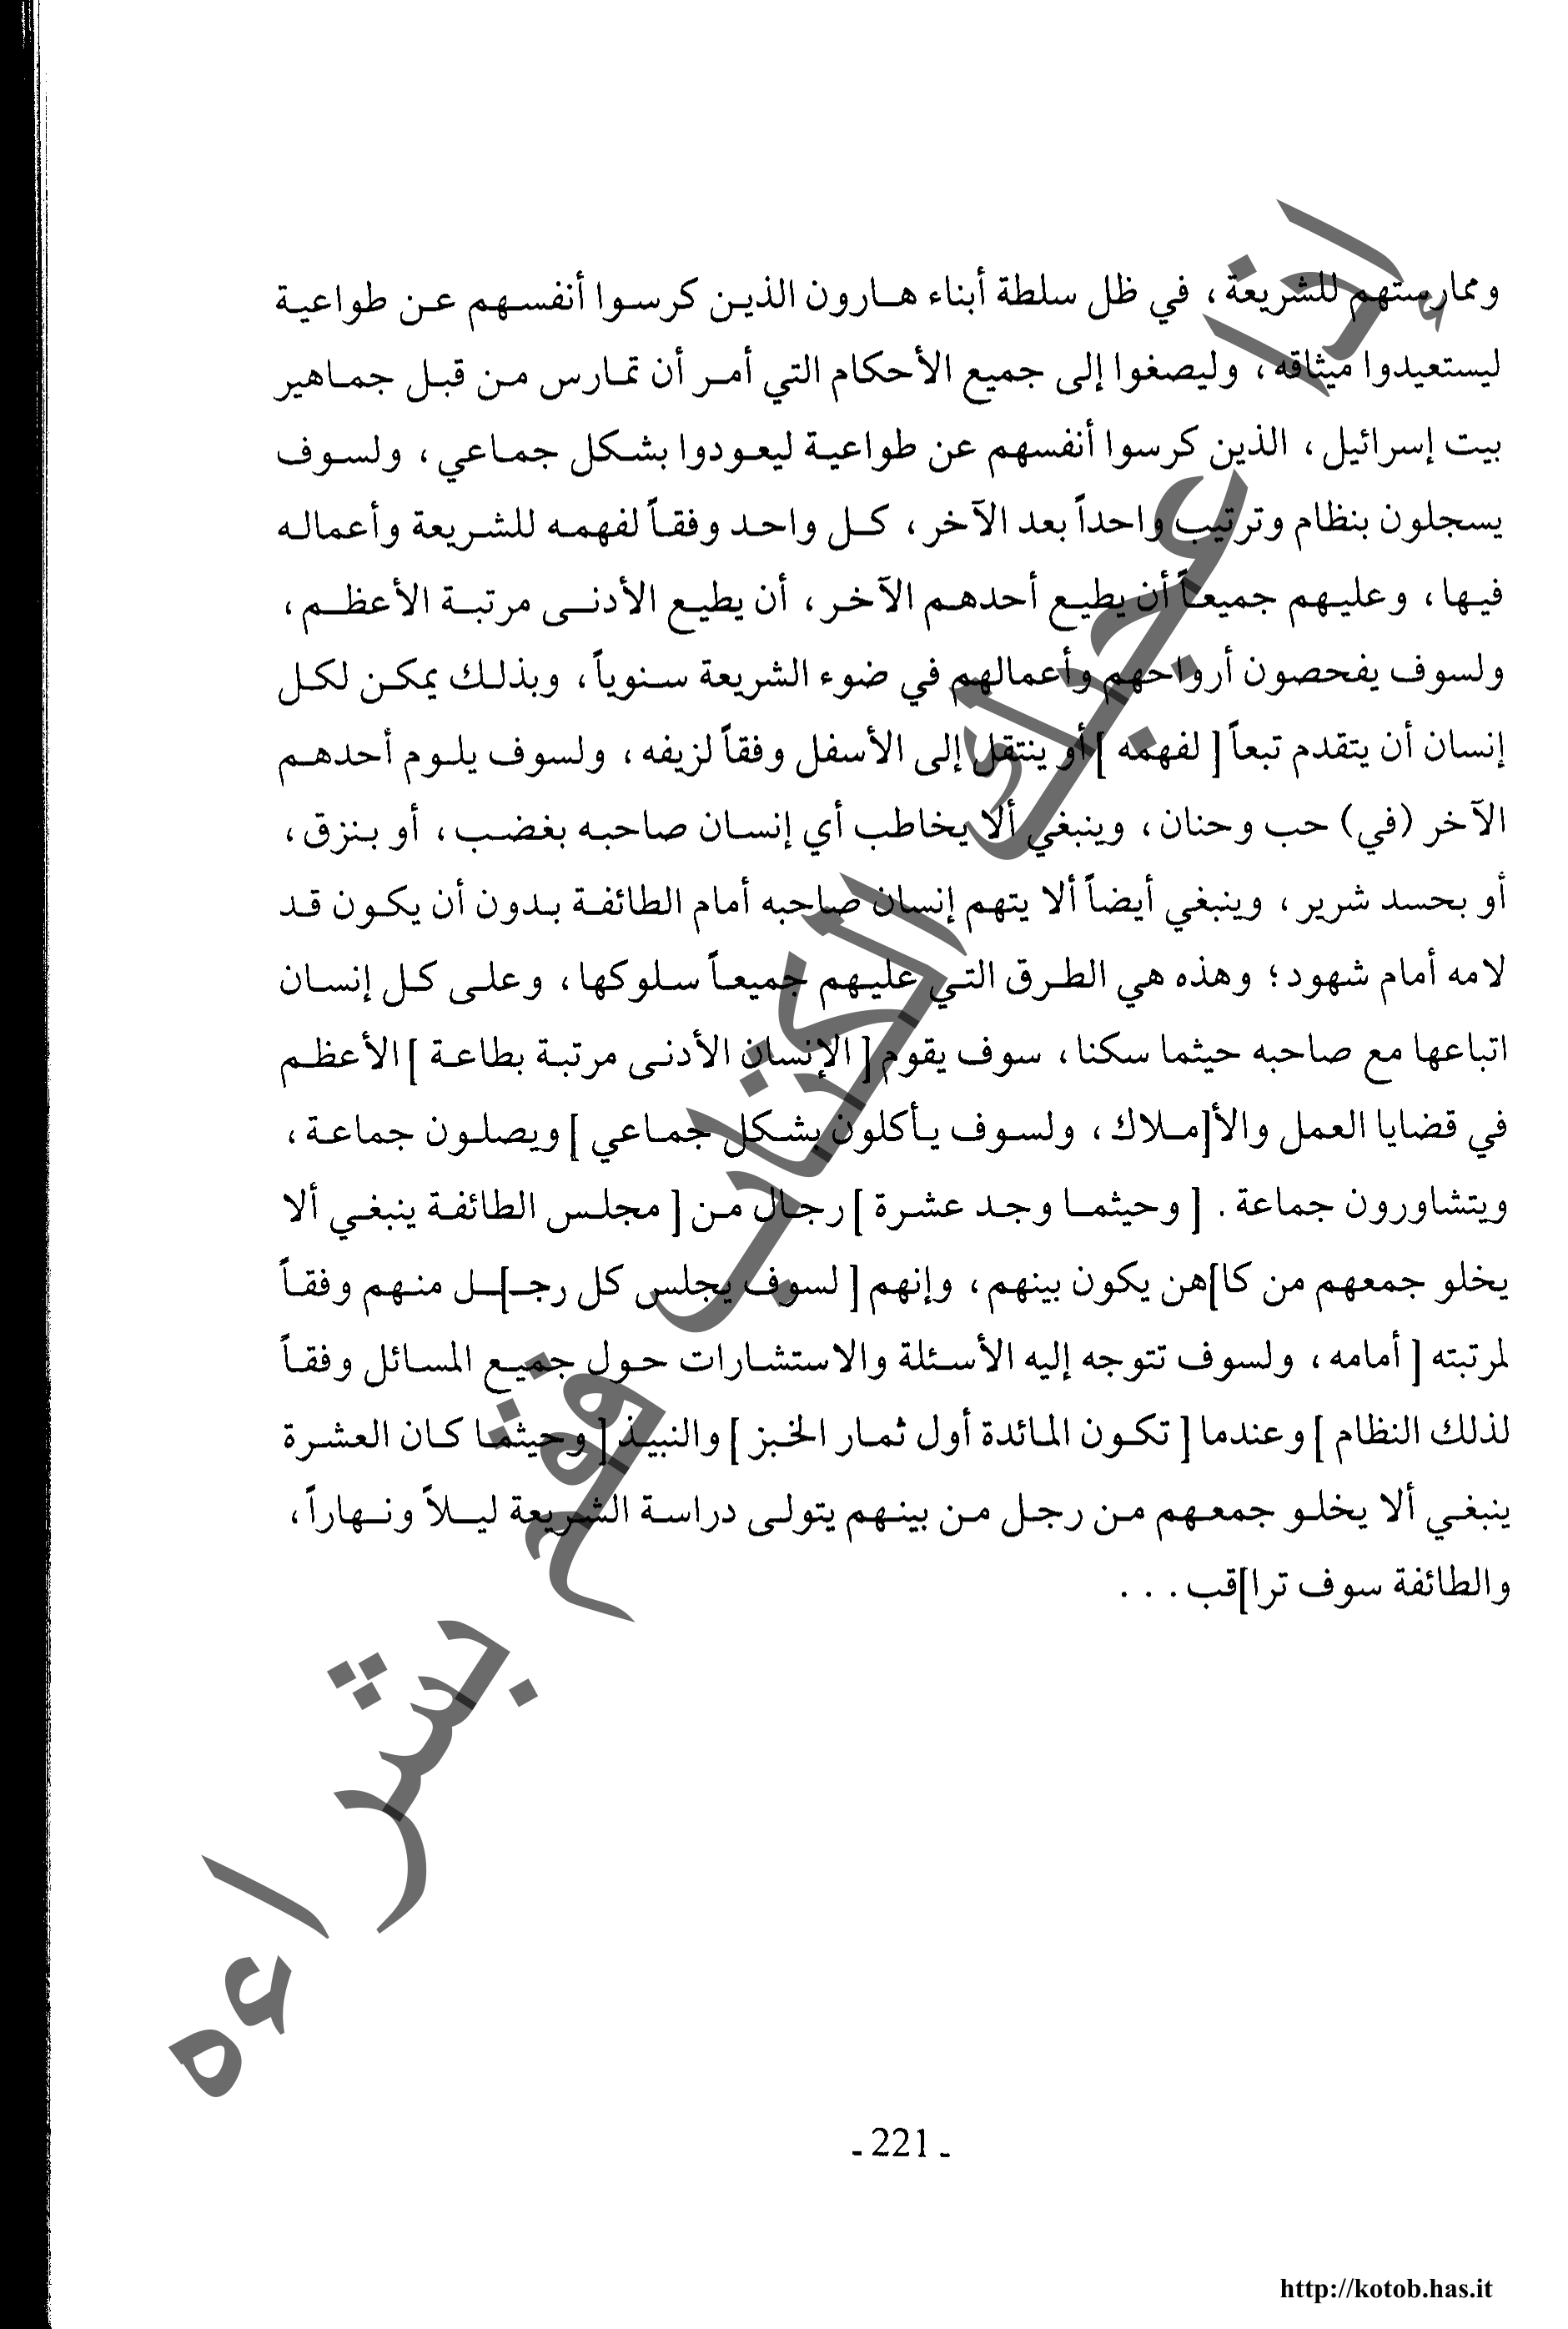 وممارستهم للشريعة، في ظل سلطة أبناء هارون الذين كرسوا أنفسهم عن طواعية
ليستعيدوا ميثاقه، وليصغوا إلى جميع الأحكام التي أمر أن تمارس من قبل جماهير
بيت إسرائيل، الذين كرسوا أنفسهم عن طواعية ليعودوا بشكل جماعي، ولسوف
يسجلون بنظام وترتيب واحداً بعد الآخر، كل واحد وفقاً لفهمه للشريعة وأعماله
فيها، وعليهم جميعاً أن يطيع أحدهم الآخر، أن يطيع الأدنى مرتبة الأعظم،
ولسوف يفحصون أرواحهم وأعمالهم في ضوء الشريعة سنوياً، وبذلك يمكن لكل
إنسان أن يتقدم تبعاً [لفهمه] أو ينتقل إلى الأسفل وفقاً لزيفه، ولسوف يلوم أحدهم
الآخر (في) حب وحنان، وينبغي ألا يخاطب أي إنسان صاحبه بغضب، أو بنزق،
أو بحسد شرير، وينبغي أيضاً ألا يتهم إنسان صاحبه أمام الطائفة بدون أن يكون قد
لامه أمام شهود؛ وهذه هي الطرق التي عليهم جميعاً سلوكها، وعلى كل إنسان
اتباعها مع صاحبه حيثما سكنا، سوف يقوم [الإنسان الأدنى مرتبة بطاعة] الأعظم
في قضايا العمل والأ[ملاك، ولسوف يأكلون بشكل جماعي] ويصلون جماعة،
ويتشاورون جماعة. [وحيثما وجد عشرة] رجال من [مجلس الطائفة ينبغي ألا
يخلو جمعهم من كا]هن يكون بينهم، وإنهم [لسوف يجلس كل رجـ]ـل منهم وفقاً
لمرتبته [أمامه، ولسوف تتوجه إليه الأسئلة والاستشارات حول جميع المسائل وفقاً
لذلك النظام] وعندما [تكون المائدة أول ثمار الخبز] والنبيذ [وحيثما كان العشرة
ينبغي ألا يخلو جمعهم من رجل من بينهم يتولى دراسة الشريعة ليلاً ونهاراً،
والطائفة سوف ترا]قب...
إذا أعجبك الكتاب فقم بشراءه
- 221 -
http://kotob.has.it